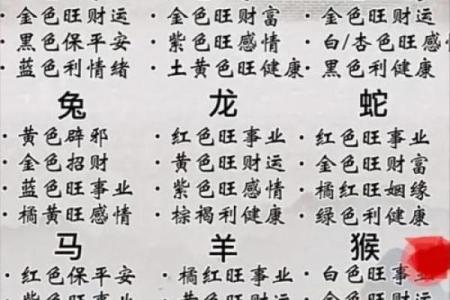 · 金色旺财运 · 金色旺财富 · 金色旺财运
· 黑色保平安 · 紫色旺感情 · 白/杏色旺感情
· 蓝色利情绪 · 土黄色旺健康 · 黑色利健康
兔 龙 蛇
· 黄色辟邪 · 红色旺事业 · 红色旺事业
· 金色招财 · 黄色旺财运 · 金色旺财富
· 蓝色旺事业 · 紫色旺感情 · 橘红旺姻缘
· 橘黄旺感情 · 棕褐利健康 · 绿色利健康
马 羊 猴
· 红色保平安 · 橘红旺事业 · 白色旺事业